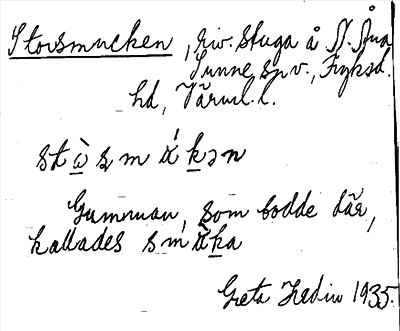 Storsmucken, riv. stuga å N. Åna
Sunne sn v., Fryksd.
hd, Värml. l.
Gumman, som bodde där,
kallades
Greta Hedin 1935.